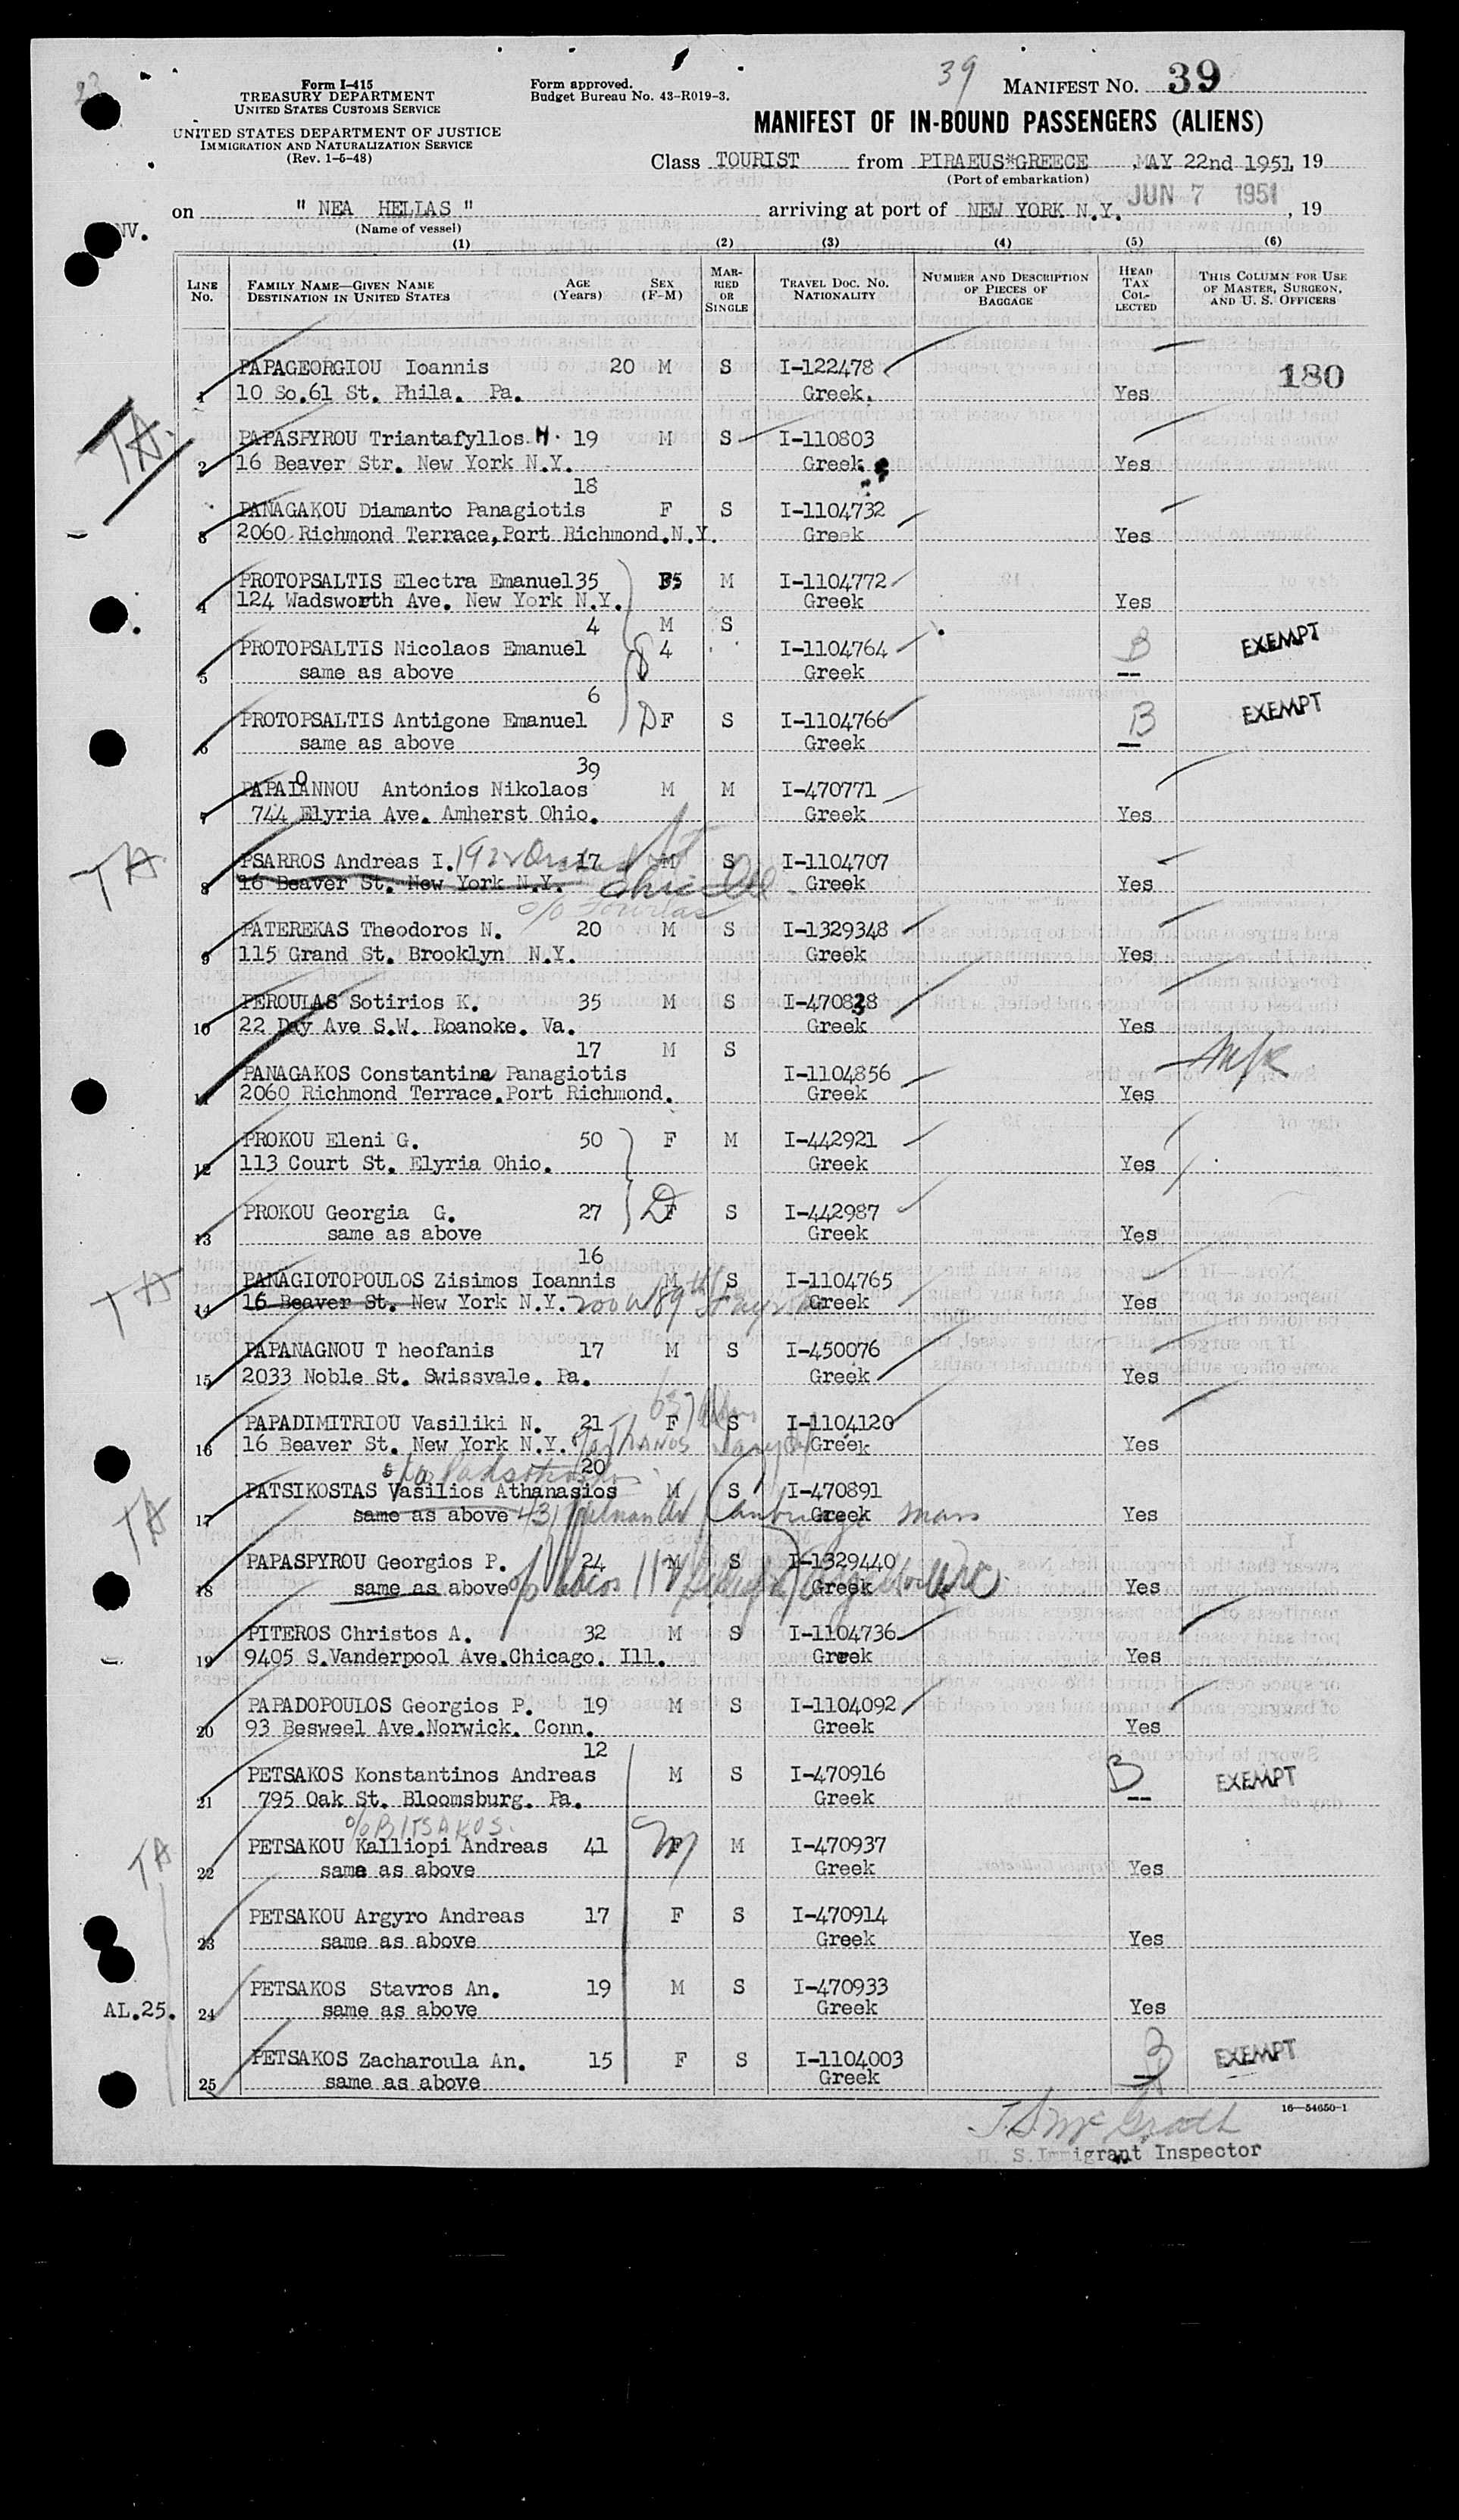 39
Form I-415
TREASURY DEPARTMENT
UNITED STATES CUSTOMS SERVICE
UNITED STATES DEPARTMENT OF JUSTICE
IMMIGRATION AND NATURALIZATION SERVICE
(Rev. 1-5-48)
Form approved.
Budget Bureau No. 43-R019-3.
MANIFEST NO. 39
MANIFEST OF IN-BOUND PASSENGERS (ALIENS)
Class TOURIST from PIRAEUS*GREECE , MAY 22nd 1951, 19
(Port of embarkation)
JUN 7 1951
on " NEA HELLAS " arriving at port of NEW YORK N.Y. , 19
(Name of vessel)
NV.
(1) (2) (3) (4) (5) (6)
LINE No. FAMILY NAME—GIVEN NAME DESTINATION IN UNITED STATES AGE (Years) SEX (F-M) MARRIED OR SINGLE TRAVEL DOC. NO. NATIONALITY NUMBER AND DESCRIPTION OF PIECES OF BAGGAGE HEAD TAX COLLECTED THIS COLUMN FOR USE OF MASTER, SURGEON, AND U. S. OFFICERS
PAPAGEORGIOU Ioannis 20 M S I-122478 180
1 10 So.61 St. Phila. Pa. Greek. Yes
TA.
PAPASPYROU Triantafyllos H. 19 M S I-110803
2 16 Beaver Str. New York N.Y. Greek Yes
18
PANAGAKOU Diamanto Panagiotis F S I-1104732
3 2060 Richmond Terrace,Port Richmond.N.Y. Greek Yes
PROTOPSALTIS Electra Emanuel 35 F M I-1104772
4 124 Wadsworth Ave. New York N.Y. Greek Yes
4 M S
PROTOPSALTIS Nicolaos Emanuel 4 I-1104764 B EXEMPT
5 same as above Greek --
6
PROTOPSALTIS Antigone Emanuel D F S I-1104766 B EXEMPT
6 same as above Greek --
39
PAPAIOANNOU Antonios Nikolaos M M I-470771
7 744 Elyria Ave. Amherst Ohio. Greek Yes
TA
PSARROS Andreas I. 17 M S I-1104707
8 16 Beaver St. New York N.Y. Greek Yes
PATEREKAS Theodoros N. 20 M S I-1329348
9 115 Grand St. Brooklyn N.Y. Greek Yes
PEROULAS Sotirios K. 35 M S I-470828
10 22 Day Ave S.W. Roanoke. Va. Greek Yes
17 M S
PANAGAKOS Constantine Panagiotis I-1104856
11 2060 Richmond Terrace.Port Richmond. Greek Yes
PROKOU Eleni G. 50 F M I-442921
12 113 Court St. Elyria Ohio. Greek Yes
PROKOU Georgia G. 27 D F S I-442987
13 same as above Greek Yes
16
TA
PANAGIOTOPOULOS Zisimos Ioannis M S I-1104765
14 16 Beaver St. New York N.Y. Greek Yes
PAPANAGNOU T heofanis 17 M S I-450076
15 2033 Noble St. Swissvale. Pa. Greek Yes
PAPADIMITRIOU Vasiliki N. 21 F S I-1104120
16 16 Beaver St. New York N.Y. Greek Yes
20
TA
PATSIKOSTAS Vasilios Athanasios M S I-470891
17 same as above Cambridge Mass Greek Yes
PAPASPYROU Georgios P. 24 M S I-1329440
18 same as above Greek Yes
PITEROS Christos A. 32 M S I-1104736
19 9405 S.Vanderpool Ave.Chicago. Ill. Greek Yes
PAPADOPOULOS Georgios P. 19 M S I-1104092
20 93 Besweel Ave.Norwick. Conn. Greek Yes
12
PETSAKOS Konstantinos Andreas M S I-470916 B EXEMPT
21 795 Oak St. Bloomsburg. Pa. Greek --
c/o BITSAKOS.
TA
PETSAKOU Kalliopi Andreas 41 F M I-470937
22 same as above Greek Yes
PETSAKOU Argyro Andreas 17 F S I-470914
23 same as above Greek Yes
PETSAKOS Stavros An. 19 M S I-470933
AL.25. 24 same as above Greek Yes
PETSAKOS Zacharoula An. 15 F S I-1104003 B EXEMPT
25 same as above Greek --
16—54650-1
J.S. McGrath
U. S.Immigrant Inspector